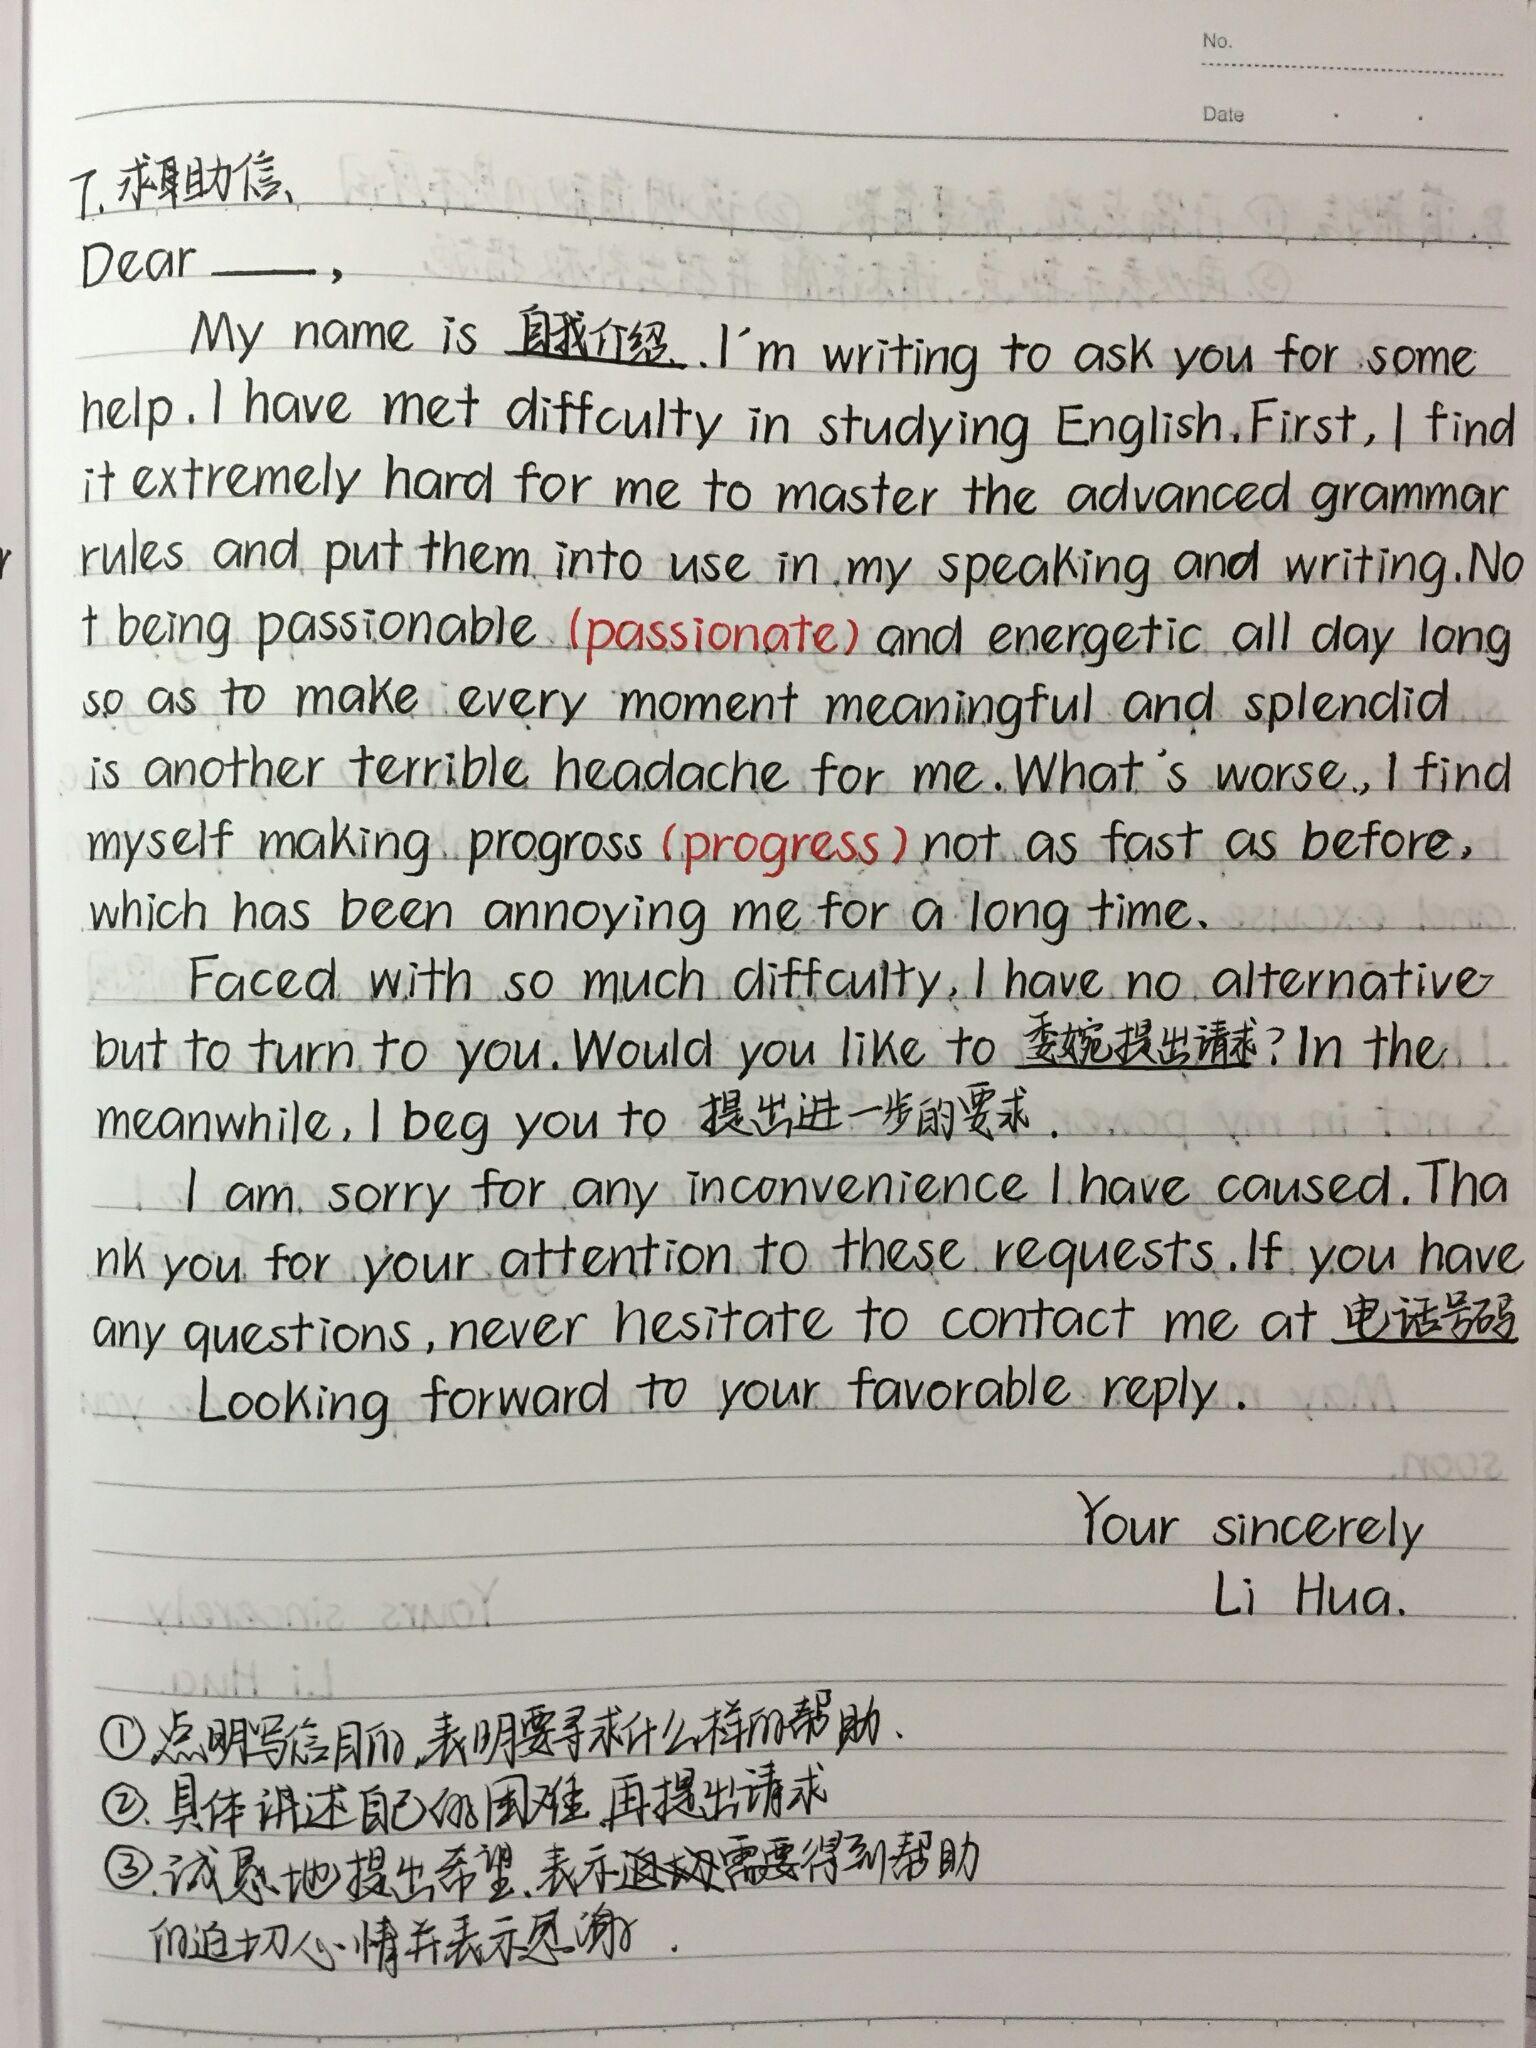 No.
Date
7.求助信、
Dear ____,
My name is 自我介绍. I'm writing to ask you for some
help. I have met diffculty in studying English. First, I find
it extremely hard for me to master the advanced grammar
rules and put them into use in my speaking and writing. No
t being passionable (passionate) and energetic all day long
so as to make every moment meaningful and splendid
is another terrible headache for me. What's worse, I find
myself making progross (progress) not as fast as before,
which has been annoying me for a long time.
Faced with so much diffculty, I have no alternative
but to turn to you. Would you like to 委婉提出请求? In the
meanwhile, I beg you to 提出进一步的要求.
I am sorry for any inconvenience I have caused. Tha
nk you for your attention to these requests. If you have
any questions, never hesitate to contact me at 电话号码
Looking forward to your favorable reply.
Your sincerely
Li Hua.
①点明写信目的,表明要寻求什么样的帮助.
②.具体讲述自己的困难,再提出请求
③.诚恳地提出希望、表示需要得到帮助
的迫切心情并表示感谢.